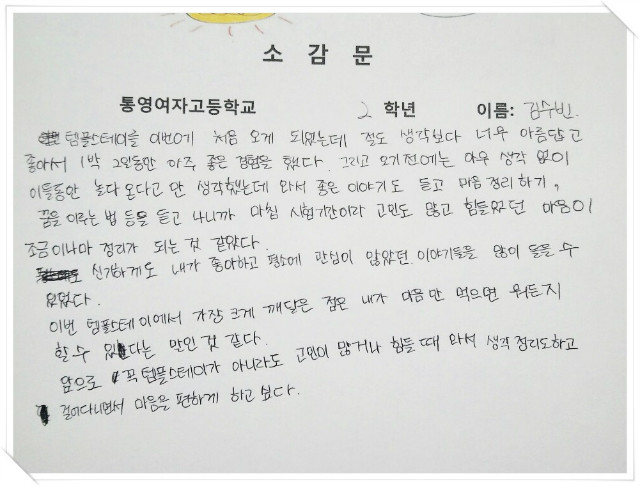 소 감 문
통영여자고등학교 2 학년 이름: 김수빈
템플스테이를 이번에 처음 오게 되었는데 절도 생각보다 너무 아름답고
좋아서 1박 2일동안 아주 좋은 경험을 했다. 그리고 오기전에는 아무 생각 없이
이틀동안 놀다 온다고 만 생각했는데 와서 좋은 이야기도 듣고 마음 정리 하기,
꿈을 이루는 법 등을 듣고 나니까 마침 시험기간이라 고민도 많고 힘들었던 마음이
조금이나마 정리가 되는 것 같았다.
신기하게도 내가 좋아하고 평소에 관심이 많았던 이야기들을 많이 들을 수
있었다.
이번 템플스테이에서 가장 크게 깨달은 점은 내가 마음만 먹으면 뭐든지
할 수 있다는 것인 것 같다.
앞으로 꼭 템플스테이가 아니라도 고민이 많거나 힘들 때 와서 생각 정리도하고
걸어다니면서 마음을 편하게 하고 싶다.